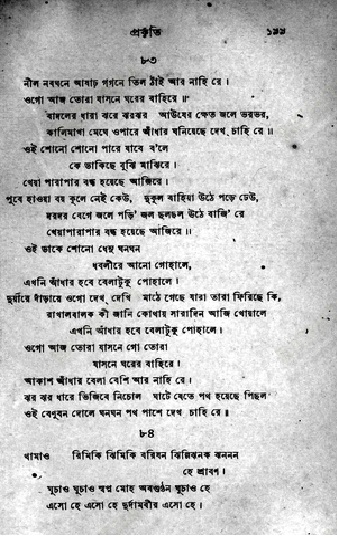 প্রকৃতি ১৯৯
৮৩
নীল নবঘনে আষাঢ় গগনে তিল ঠাঁই আর নাহি রে ।
ওগো আজ তোরা যাসনে ঘরের বাহিরে ॥
বাদলের ধারা ঝরে ঝরঝর আউষের ক্ষেত জলে ভরভর,
কালিমাখা মেঘে ওপারে আঁধার ঘনিয়েছে দেখ্ চাহি রে ॥
ওই শোনো শোনো পারে যাবে ব'লে
কে ডাকিছে বুঝি মাঝিরে ।
খেয়া পারাপার বন্ধ হয়েছে আজিরে ।
পুবে হাওয়া বয় কূলে নেই কেউ, দুকূল বাহিয়া উঠে পড়ে ঢেউ,
দরদর বেগে জলে পড়ি' জল ছলছল উঠে বাজি' রে
খেয়াপারাপার বন্ধ হয়েছে আজিরে ॥
ওই ডাকে শোনো ধেনু ঘনঘন
ধবলীরে আনো গোহালে,
এখনি আঁধার হবে বেলাটুকু পোহালে ।
দুয়ারে দাঁড়ায়ে ওগো দেখ্ দেখি মাঠে গেছে যারা তারা ফিরিছে কি,
রাখালবালক কী জানি কোথায় সারাদিন আজি খোয়ালে
এখনি আঁধার হবে বেলাটুকু পোহালে ।
ওগো আজ তোরা যাসনে গো তোরা
যাসনে ঘরের বাহিরে ।
আকাশ আঁধার বেলা বেশি আর নাহি রে ।
ঝর ঝর ধারে ভিজিবে নিচোল ঘাটে যেতে পথ হয়েছে পিছল
ওই বেণুবন দোলে ঘনঘন পথ পাশে দেখ্ চাহি রে ॥
৮৪
থামাও রিমিকি ঝিমিকি বরিষন ঝিল্লিঝনক ঝননন
হে শ্রাবণ ।
ঘুচাও ঘুচাও স্বপ্ন মোহ অবগুণ্ঠন ঘুচাও হে
এসো হে এসো হে দুর্দামবীর এসো হে ।